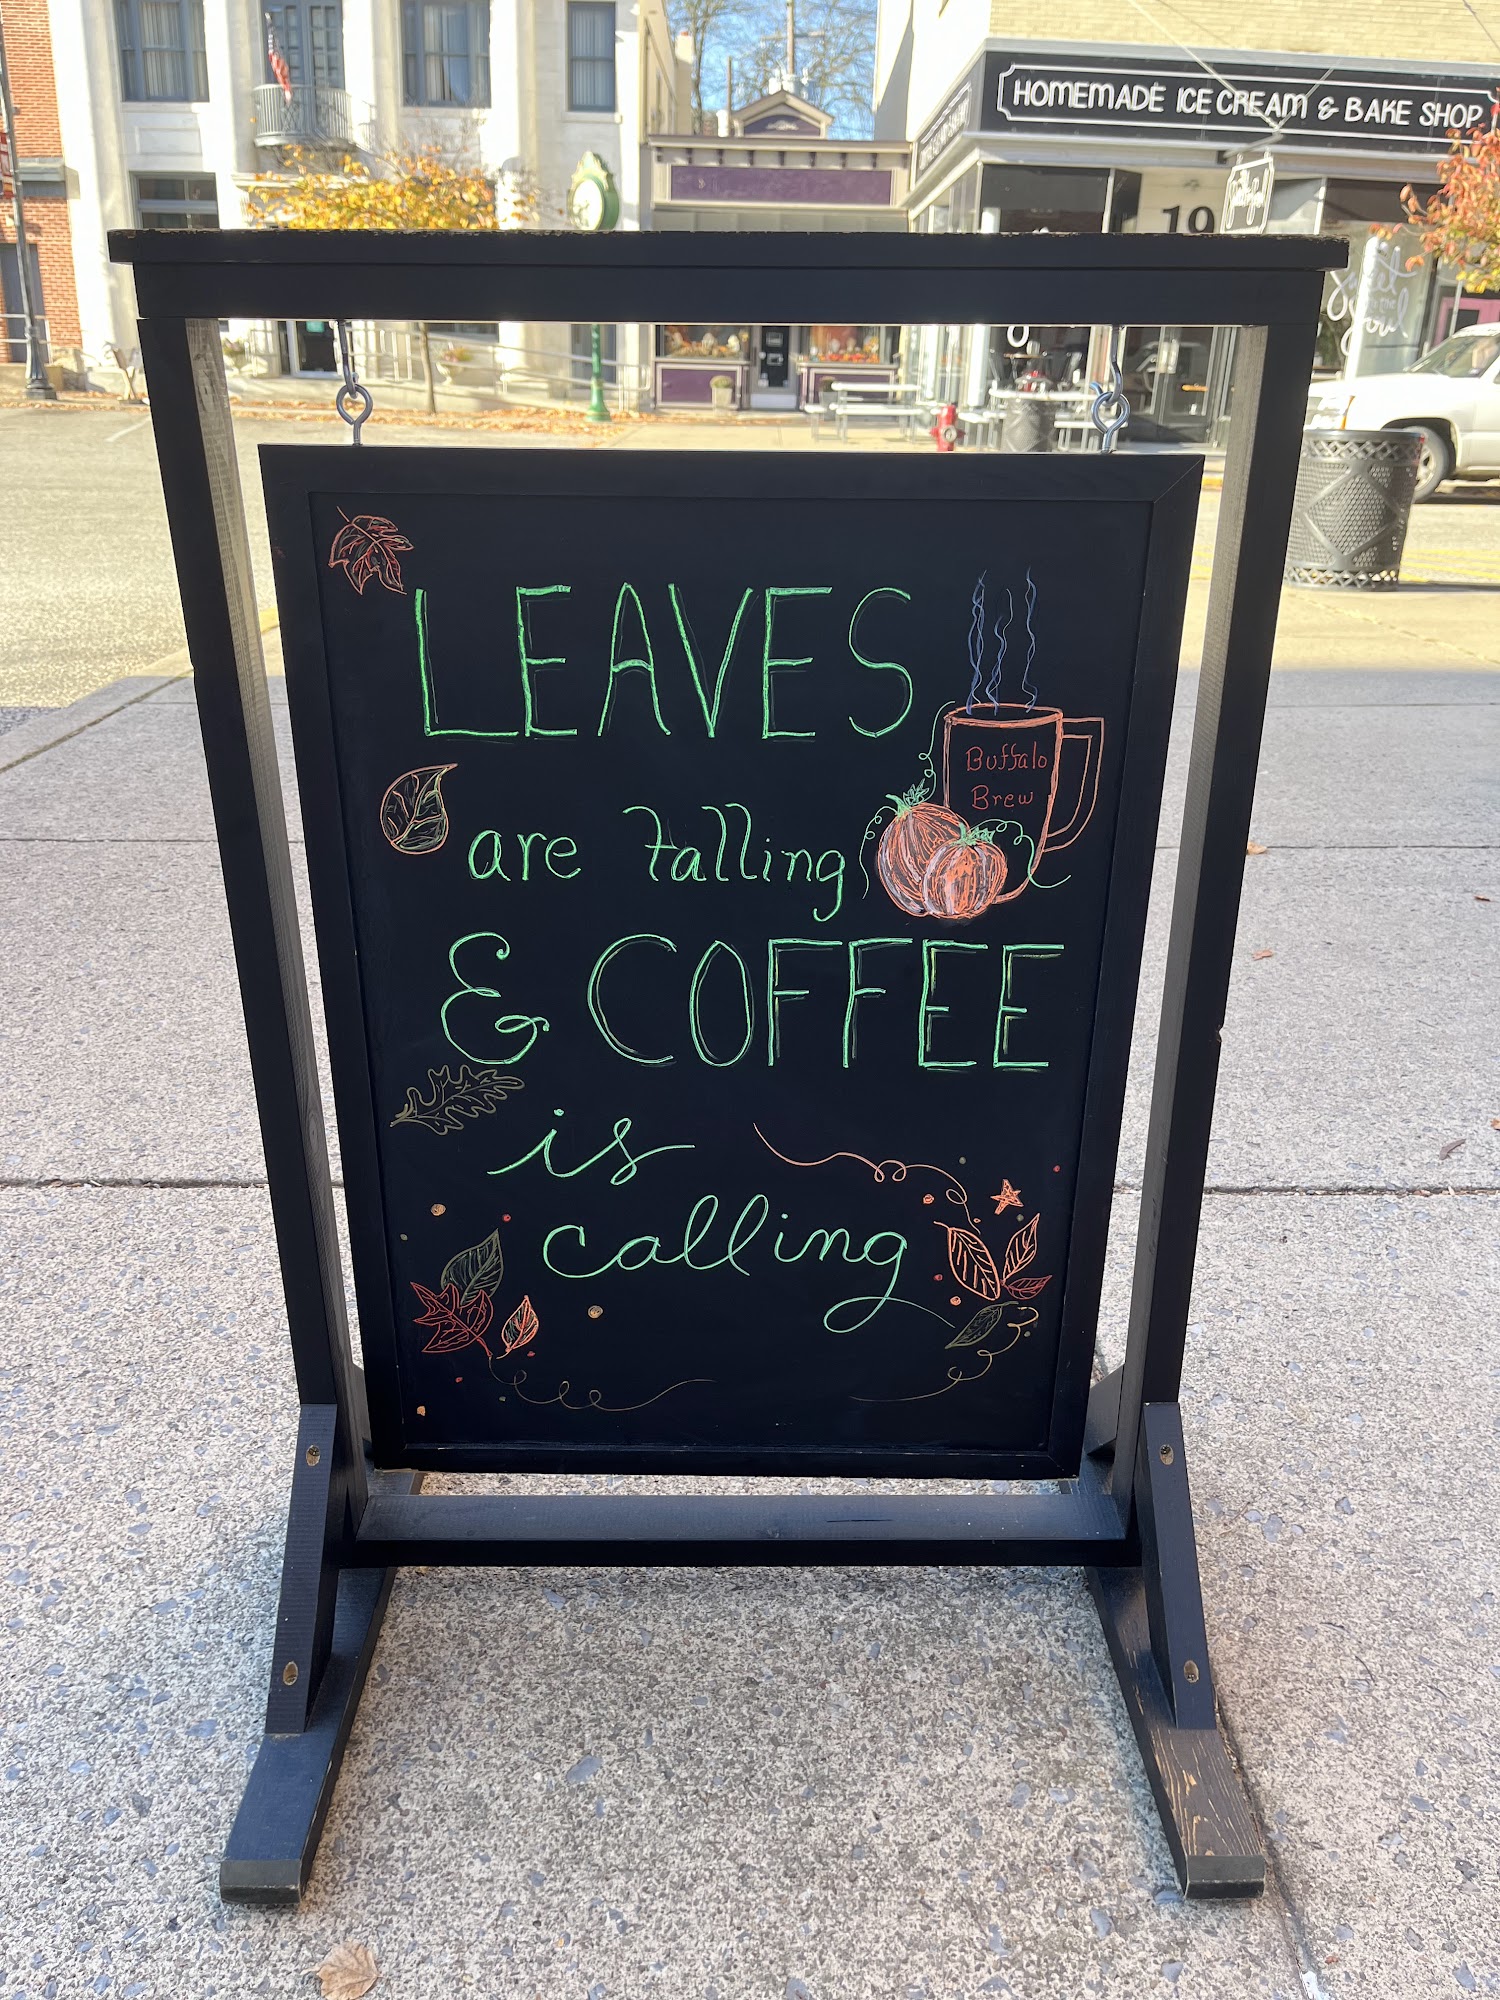 HOMEMADE ICE CREAM & BAKE SHOP
19
Sweet
Soul
LEAVES
Buffalo
Brew
are falling
& COFFEE
is
calling